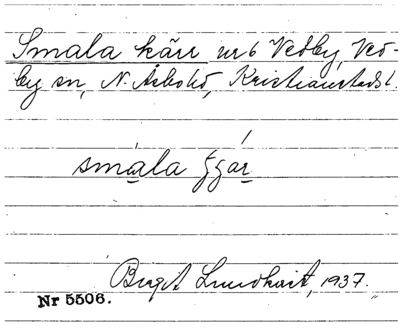 Smala kärr nr 6 Vedby, Ved-
by sn, N. Åsbohd, Kristianstads l.
smala
Birgit Lundkvist, 1937.
Nr 5506.